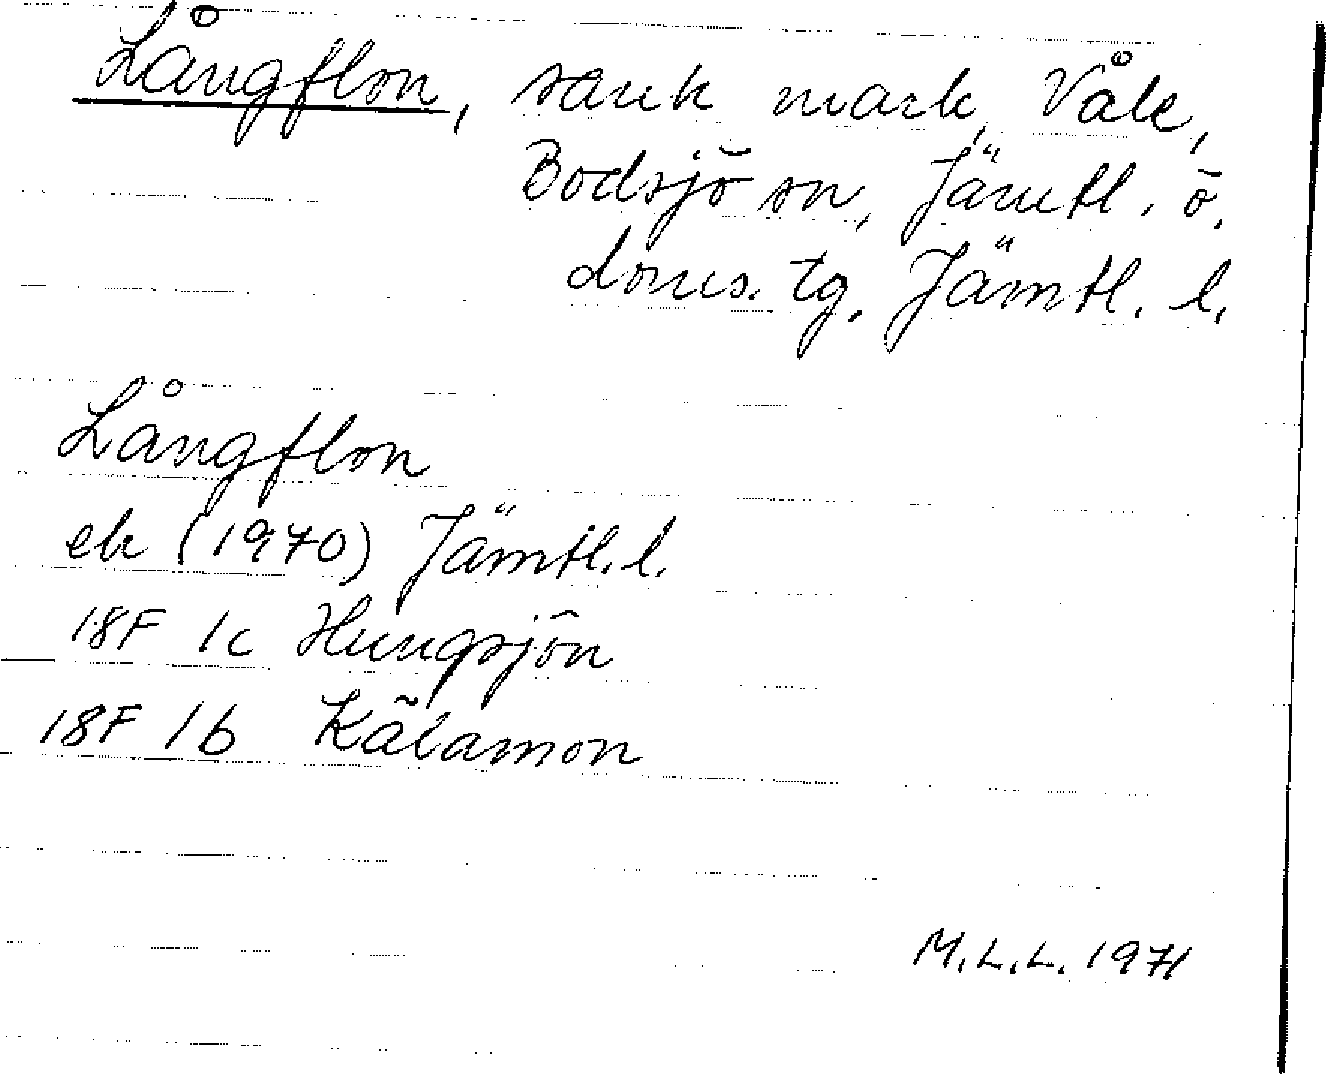 Långflon, sank mark, Våle,
Bodsjö sn, Jämtl. ö.
doms. tg, Jämtl. l.
Långflon
ek (1970) Jämtl. l.
18F 1c Hungsjön
18F 1b Kälamon
M.L.L. 1971